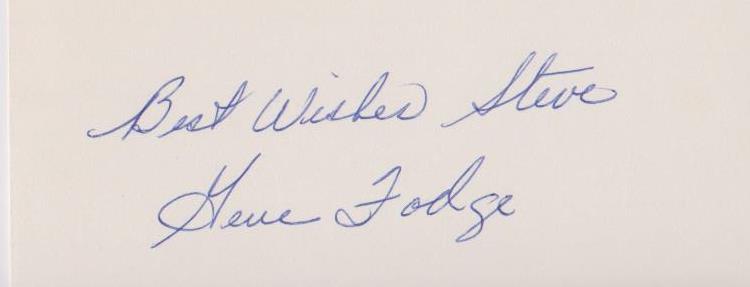 Best Wishes Steve
Gene Fodge